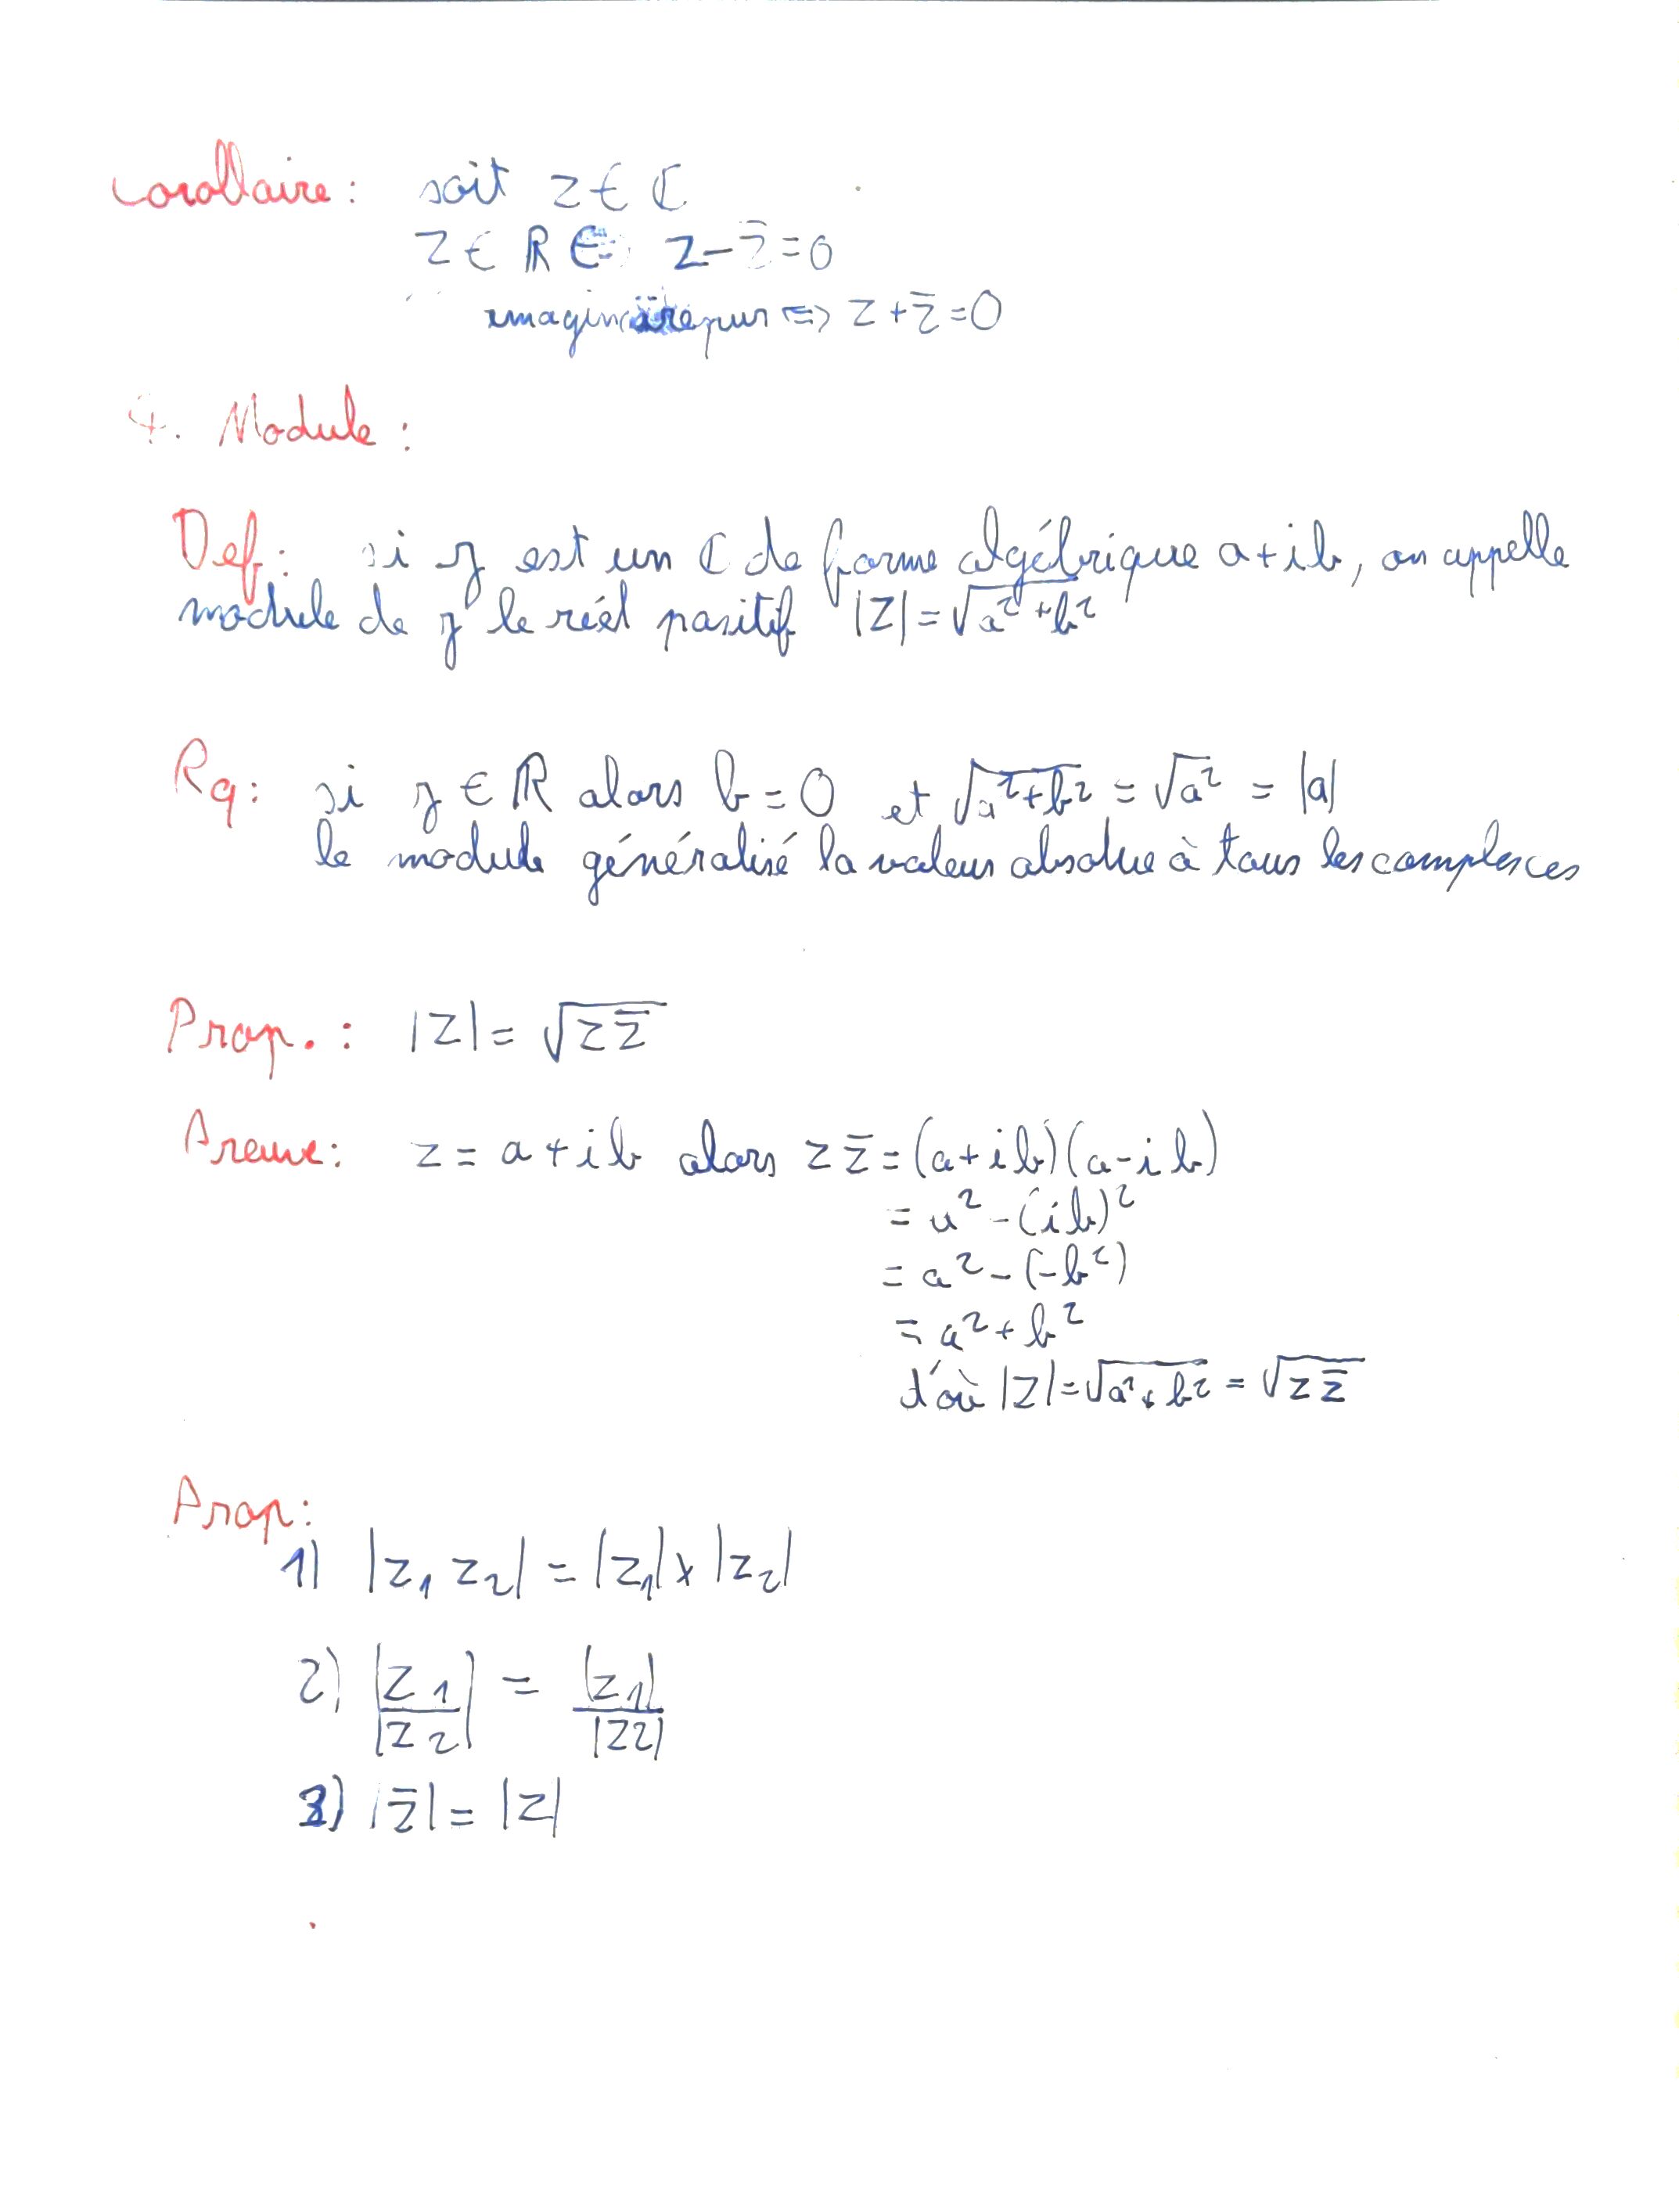 Corollaire : soit z ∈ ℂ
z ∈ ℝ ⇔ z - z̄ = 0
imaginaire pur ⇔ z + z̄ = 0
4. Module :
Def : si z est un ℂ de forme algébrique a + ib, on appelle
module de z le réel positif |z| = √(a² + b²)
Rq : si z ∈ ℝ alors b = 0 et √(a² + b²) = √a² = |a|
le module généralisé la valeur absolue à tous les complexes
Prop. : |z| = √(z z̄)
Preuve : z = a + ib alors z z̄ = (a + ib)(a - ib)
= a² - (ib)²
= a² - (-b²)
= a² + b²
d'où |z| = √(a² + b²) = √(z z̄)
Prop :
1) |z₁ z₂| = |z₁| × |z₂|
2) |z₁/z₂| = |z₁|/|z₂|
3) |z̄| = |z|